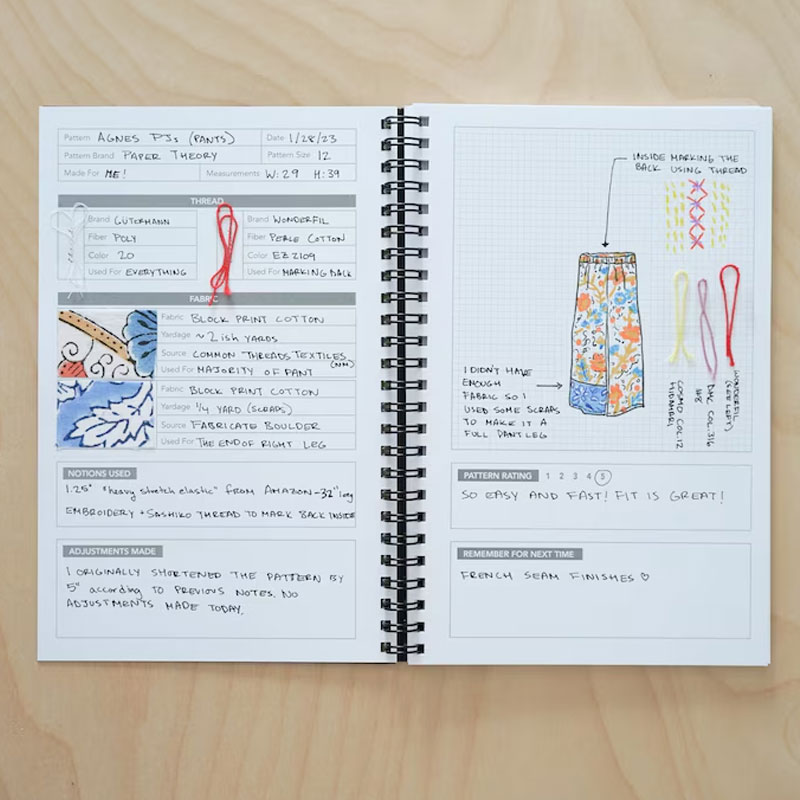 Pattern AGNES PJs (PANTS) Date 1/28/23
Pattern Brand PAPER THEORY Pattern Size 12
Made For ME! Measurements W: 29 H: 39
THREAD
Brand GÜTERMANN
Fiber POLY
Color 20
Used For EVERYTHING
Brand WONDERFIL
Fiber PERLE COTTON
Color EZ2109
Used For MARKING BACK
FABRIC
Fabric BLOCK PRINT COTTON
Yardage ~ 2 ish YARDS
Source COMMON THREADS TEXTILES (NM)
Used For MAJORITY OF PANT
Fabric BLOCK PRINT COTTON
Yardage 1/4 YARD (SCRAPS)
Source FABRICATE BOULDER
Used For THE END OF RIGHT LEG
NOTIONS USED
1.25" "heavy stretch elastic" FROM AMAZON - 32" long
EMBROIDERY + SASHIKO THREAD TO MARK BACK INSIDE
ADJUSTMENTS MADE
I ORIGINALLY SHORTENED THE PATTERN BY
5" according TO PREVIOUS NOTES. NO
ADJUSTMENTS MADE TODAY.
INSIDE MARKING THE
BACK USING THREAD
I DIDN'T HAVE
ENOUGH
FABRIC SO I
USED SOME SCRAPS
TO MAKE IT A
FULL PANT LEG
COSMO COL. 12
HIDAMARI
DMC COL. 316
#8
WONDERFIL
(SEE LEFT)
PATTERN RATING 1 2 3 4 5
SO EASY AND FAST! FIT IS GREAT!
REMEMBER FOR NEXT TIME
FRENCH SEAM FINISHES ♡